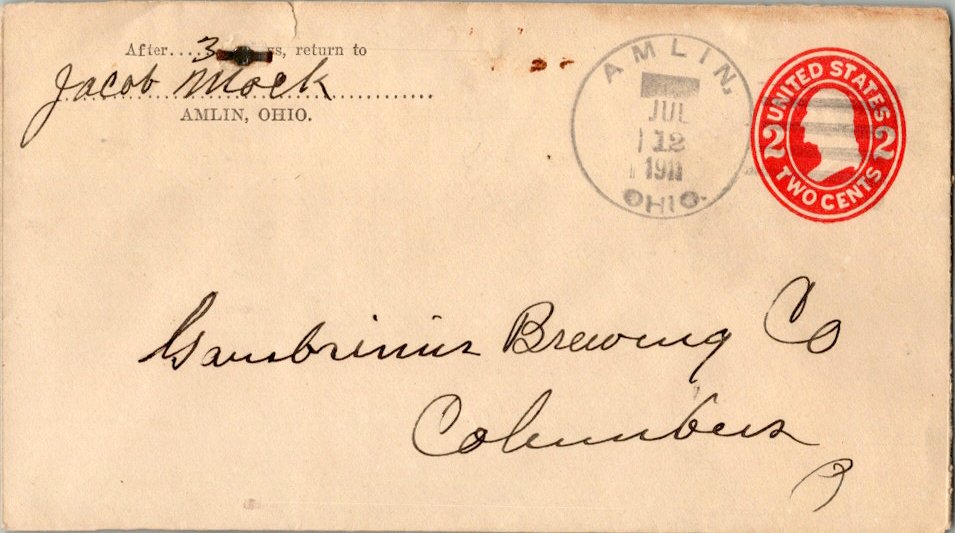 After....3.......ys, return to
Jacob Mock
AMLIN, OHIO.
AMLIN,
JUL
12
1911
OHIO.
UNITED STATES
2 2
TWO CENTS
Gambrinus Brewing Co
Columbus
O